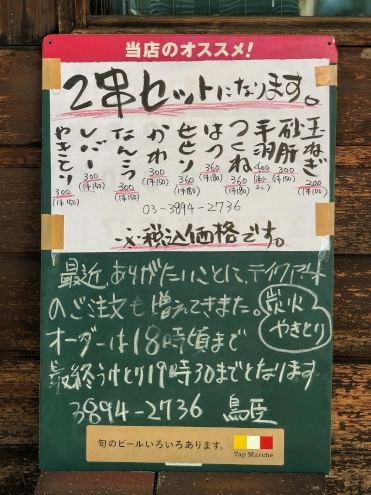 当店のオススメ!
2串セットになります。
玉ねぎ 200 (1本100)
砂肝 300 (1本150)
手羽 400
つくね 360 (1本180)
はつ 360 (1本180)
せせり 360 (1本180)
かわ 300 (1本150)
なんこつ 300 (1本150)
レバー 300 (1本150)
やきとり 300 (1本150)
03-3894-2736
※税込価格です。
最近、ありがたいことに、テイクアウト
のご注文も増えてきました。
炭火
やきとり
オーダーは18時頃まで
最終うけとり19時30までとなります
3894-2736 鳥臣
旬のビールいろいろあります。
Tap Marché